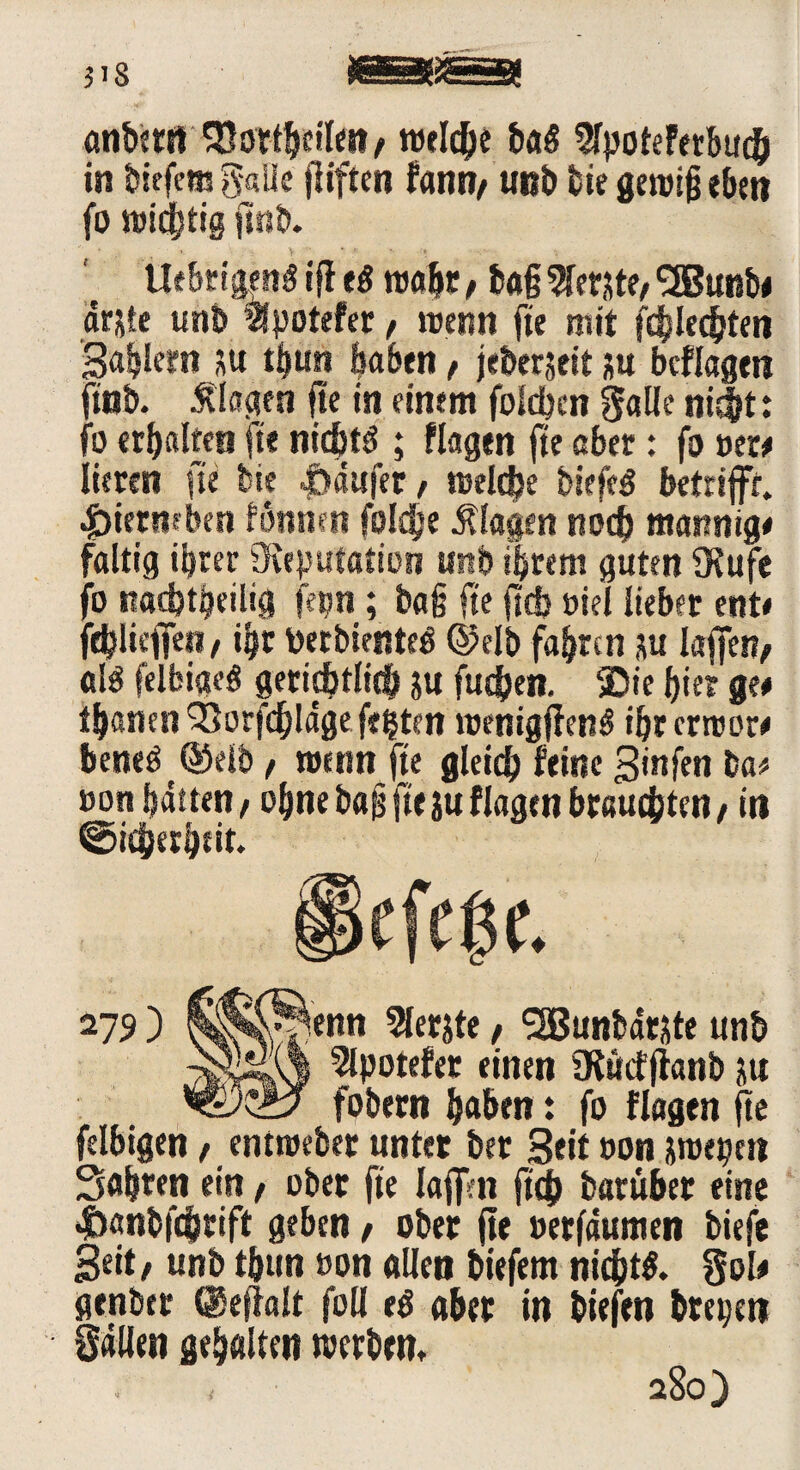 318
andern Vortheilen, welche das Apotekerbuch
in diesem Falle stiften kann, und die gewiß eben
so wichtig sind.
Uebrigens ist es wahr, daß Aerzte, Wund⸗
ärzte und Apoteker, wenn sie mit schlechten
Zahlern zu thun haben, jederzeit zu beklagen
sind. Klagen sie in einem solchen Falle nicht:
so erhalten sie nichts; klagen sie aber: so ver⸗
lieren sie die Häuser, welche dieses betrifft.
Hierneben können solche Klagen noch mannig⸗
faltig ihrer Reputation und ihrem guten Rufe
so nachtheilig seyn; daß sie sich viel lieber ent⸗
schliessen, ihr verdientes Geld fahren zu lassen,
als selbiges gerichtlich zu suchen. Die hier ge⸗
thanen Vorschläge setzten wenigstens ihr erwor⸗
benes Geld, wenn sie gleich keine Zinsen da⸗
von hätten, ohne daß sie zu klagen brauchten, in
Sicherheit.
Gesetze.
279) Wenn Aerzte, Wundärzte und
Apoteker einen Rückstand zu
fodern haben: so klagen sie
selbigen, entweder unter der Zeit von zweyen
Jahren ein, oder sie lassen sich darüber eine
Handschrift geben, oder sie versäumen diese
Zeit, und thun von allen diesem nichts. Fol⸗
gender Gestalt soll es aber in diesen dreyen
Fällen gehalten werden.
280)